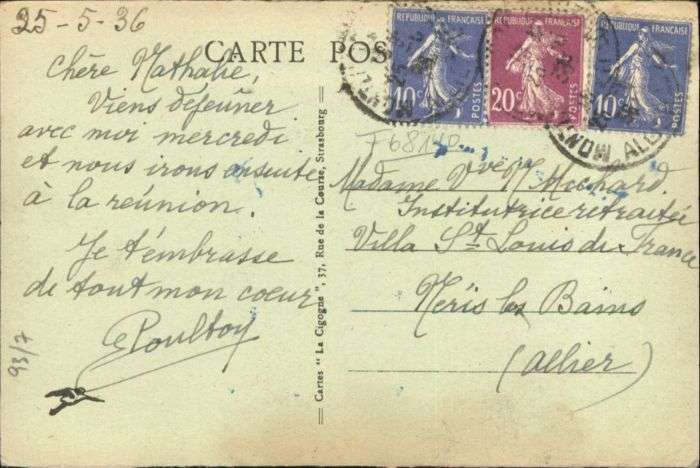 25-5-36
CARTE POS
Chère Nathalie,
Viens déjeuner
avec moi mercredi
et nous irons ensuite
à la réunion.
Je t'embrasse
de tout mon coeur
93/7
Cartes " La Cigogne ", 37, Rue de la Course, Strasbourg
REPUBLIQUE FRANÇAISE
10c POSTES
REPUBLIQUE FRANÇAISE
20c POSTES
REPUBLIQUE FRANÇAISE
10c POSTES
F68140
Madame Vve N. Michard.
Institutrice retraitée
Villa St. Louis de France
Néris les Bains
(Allier)